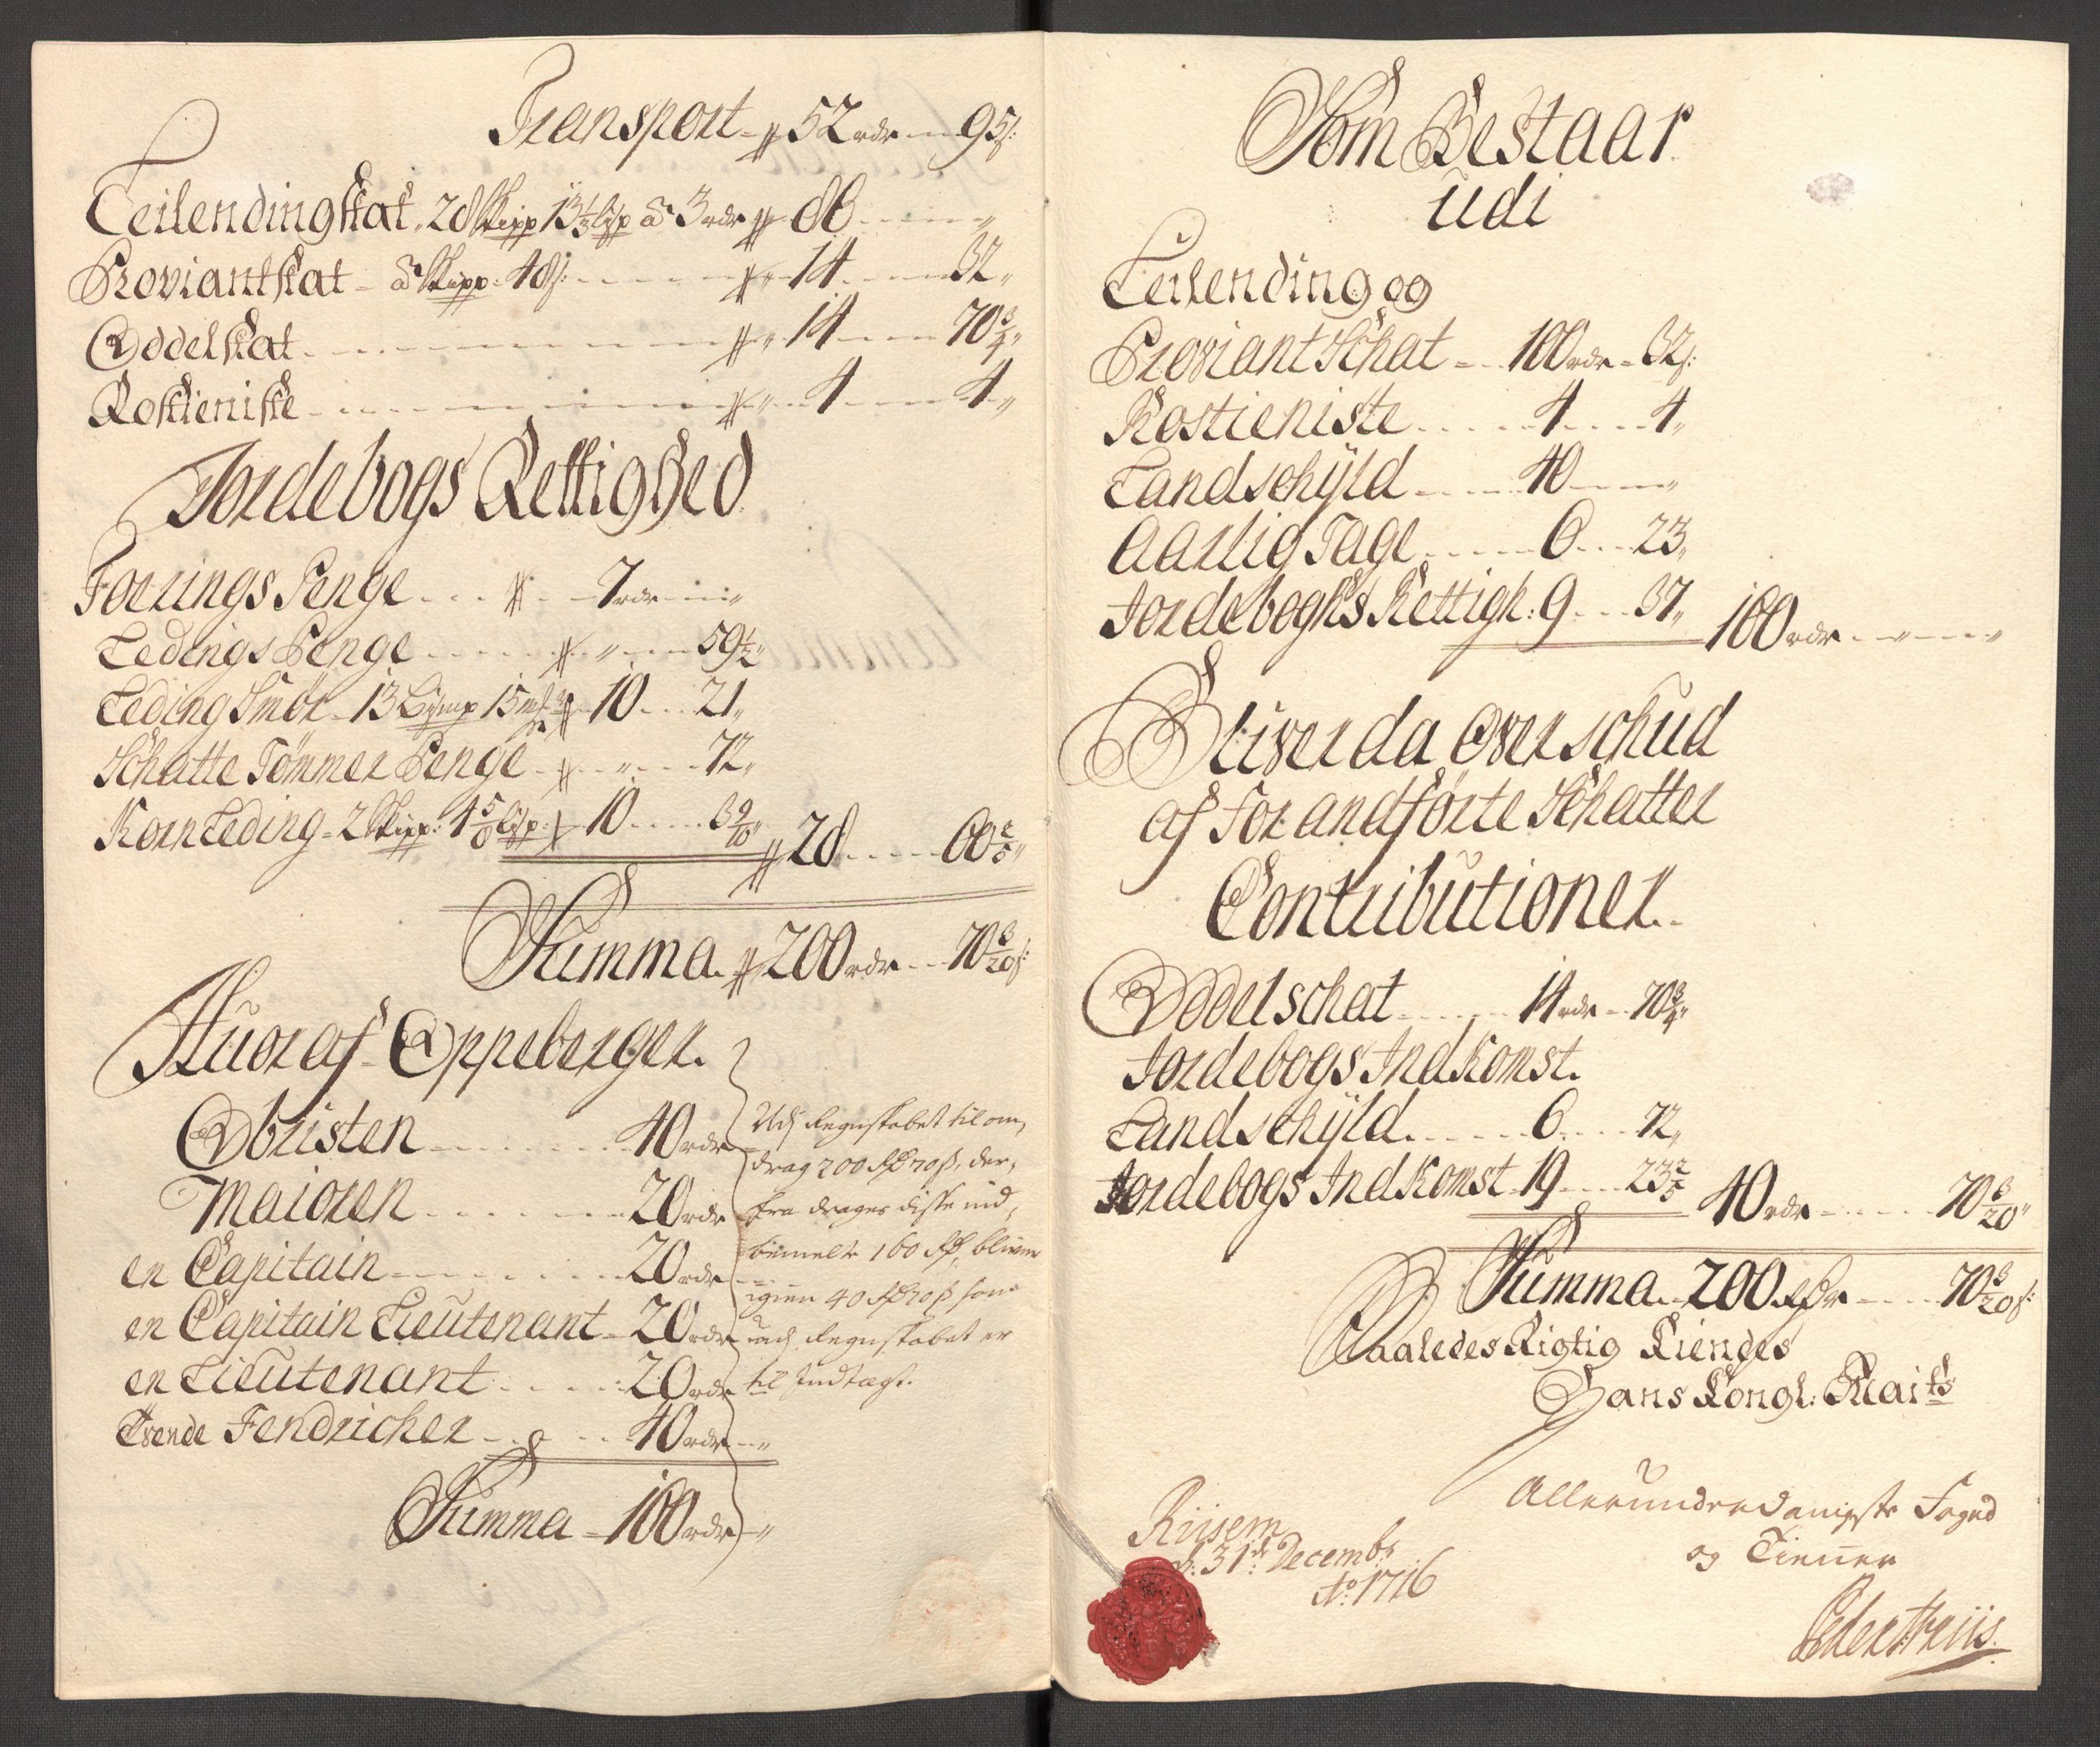 Transport # 52 rdr 95 s:
Leilending skat. 28 skipp 13 1/3 lisp à 3 rdr # 86 "
Proviantskat à skipp: 48 s: # 14 32 "
Oddelskat # 14 70 3/4 "
Rostieniste # 4 4 "
Jordebogs Rettighed
Foerings Penge # 7 rdr "
Ledings Penge # " 59 1/2 "
Leding Smör 13 13 mk # 10 21 "
Schatte Tömmer Penge # " 72 "
Korn Leding 2 skipp: 4 5/6 lisp: # 10 3 9/10 " # 28 60 2/5 "
Summa # 200 rdr 70 3/20 s:
Huoraf Oppeberger.
Obristen 40 rdr
Maioren 20 rdr
en Capitain 20 rdr
en Capitain Lieutenant 20 rdr
en Lieutenant 20 rdr
Tvende Fendricher 40 rdr "
Summa 160 rdr "
Udj Regnskabet til om,
drag 200 Rdr 70 s, der,
fra drages disse ind,
bemelte 160 Rdr, bliver
igien 40 Rdr 70 s som
udj Regnskabet er
til Indtægt.
Som Bestaar
udi
Leilending og
Proviant Schat 100 rdr 32 s:
Rostieniste 4 4 "
Landschÿld 40 "
Aarlig Tage 6 23 "
Jordeboghs Rettigh: 9 37 " 160 rdr "
Bliver da Overschud
af For andförte Schatter
Contributioner.
Oddelschat 14 rdr 70 3/4 "
Jordebogs Indkomst.
Landschÿld 6 72 "
Jordebogs Indkomst 19 23 2/5 40 rdr 70 3/20 "
Summa 200 Rdr 70 3/20 s:
Saaledes Rigtig Kiendes
Hans Kongl: Maits
Allerunderdanigste Foged
og Tienner
Riisem
d: 31de Decembr
Ao 1716
Peder